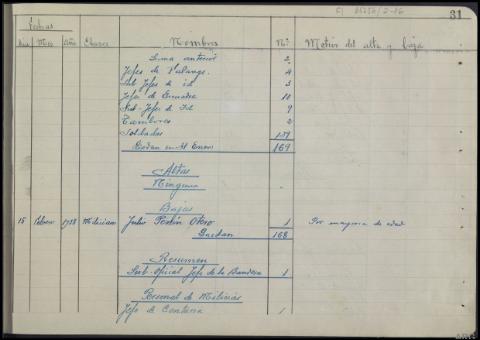 31
Fechas
Dia Mes Año Clases Nombres Nº Motivo del alta y baja
Suma anterior 2
Jefes de Falange 4
Sub Jefes de id 3
Jefes de Escuadra 10
Sub-Jefes de Id 9
Tambores 2
Soldados
Quedan en 31 Enero 169
Altas
Ninguna
Bajas
15 Febrero 1938 Miliciano Julio Otero 1 Por mayoria de edad
Quedan 168
Resumen
Sub-Oficial Jefe de la Bandera 1
Personal de Milicias
Jefe de Centuria 1